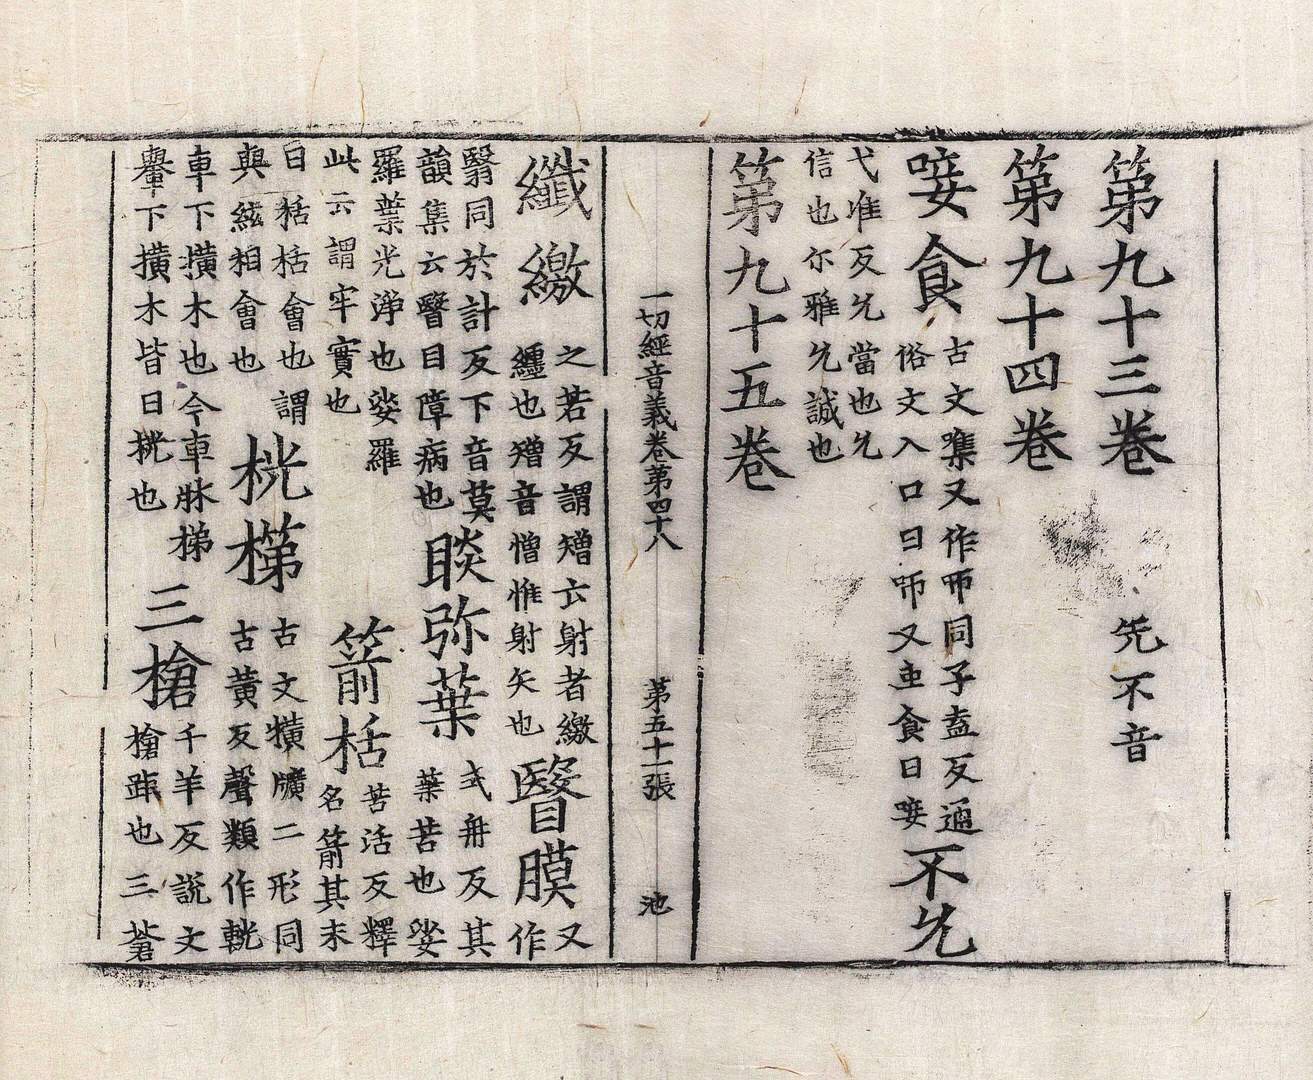 第九十三卷 先不音
第九十四卷
唼食
古文噍又作咂同子盍反通
俗文入口曰咂又虫食曰唼
不允
弋准反允當也允
信也尔雅允誠也
第九十五卷
一切經音義卷第四十八 第五十一張 池
纖繳
之若反謂矰弋射者繳
纏也矰音憎惟射矢也
瞖膜
又
作
翳同於計反下音莫
韻集云瞖目障病也
睒弥葉
式冉反其
葉苦也娑
羅葉光淨也娑羅
此云謂牢實也
箭栝
苦活反釋
名箭其末
曰栝栝會也謂
與絃相會也
桄梯
古文横㸙二形同
古黃反聲類作輄
車下横木也今車牀梯
轝下横木皆曰桄也
三槍
千羊反説文
槍距也三蒼